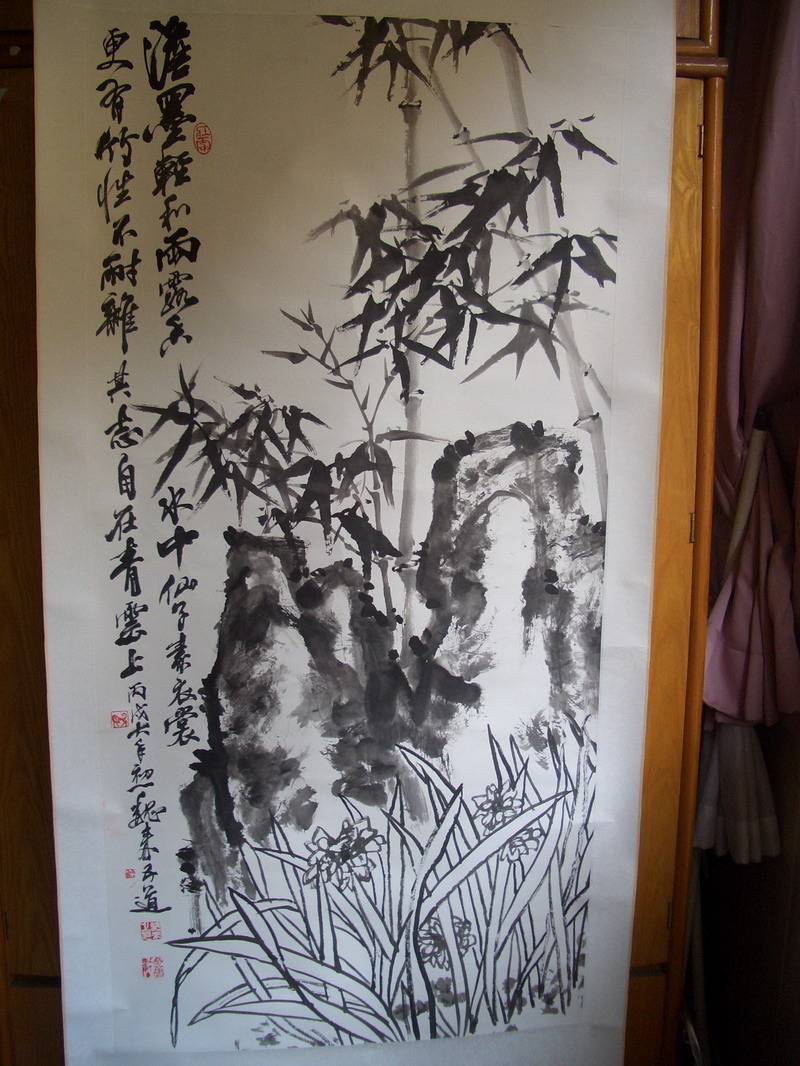 澹墨輕和雨露香 水中仙子素衣裳
更有竹性不耐 其志自在青雲上 丙戌大年初 魏